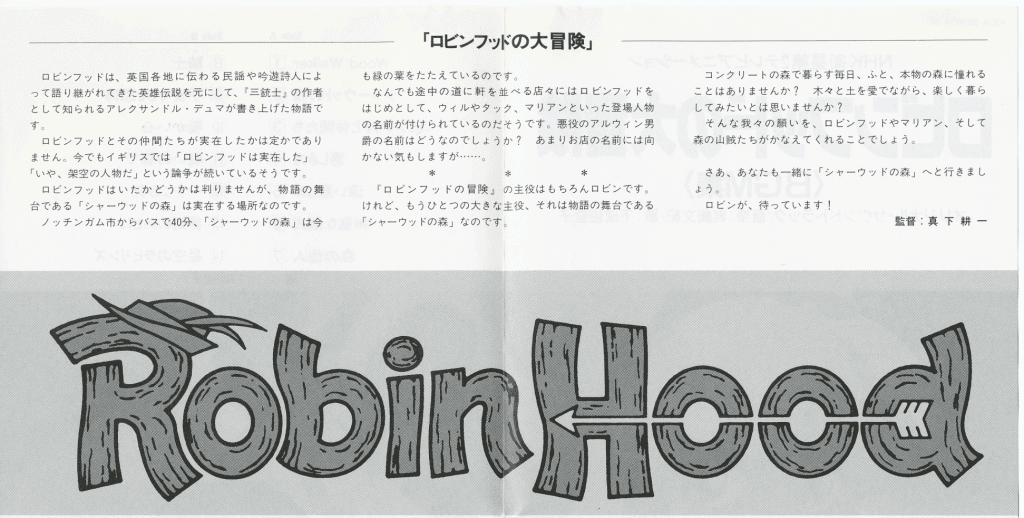 「ロビンフッドの大冒険」
ロビンフッドは、英国各地に伝わる民謡や吟遊詩人によ
って語り継がれてきた英雄伝説を元にして、『三銃士』の作者
として知られるアレクサンドル・デュマが書き上げた物語で
す。
ロビンフッドとその仲間たちが実在したかは定かであり
ません。今でもイギリスでは「ロビンフッドは実在した」
「いや、架空の人物だ」という論争が続いているそうです。
ロビンフッドはいたかどうかは判りませんが、物語の舞
台である「シャーウッドの森」は実在する場所なのです。
ノッチンガム市からバスで40分、「シャーウッドの森」は今
も緑の葉をたたえているのです。
なんでも途中の道に軒を並べる店々にはロビンフッドを
はじめとして、ウィルやタック、マリアンといった登場人物
の名前が付けられているのだそうです。悪役のアルウィン男
爵の名前はどうなのでしょうか？　あまりお店の名前には向
かない気もしますが……。
＊　＊　＊
『ロビンフッドの冒険』の主役はもちろんロビンです。
けれど、もうひとつの大きな主役、それは物語の舞台である
「シャーウッドの森」なのです。
コンクリートの森で暮らす毎日、ふと、本物の森に憧れる
ことはありませんか？　木々と土を愛でながら、楽しく暮ら
してみたいとは思いませんか？
そんな我々の願いを、ロビンフッドやマリアン、そして
森の山賊たちがかなえてくれることでしょう。
さあ、あなたも一緒に「シャーウッドの森」へと行きまし
ょう。
ロビンが、待っています！
監督：真下耕一
Robin Hood